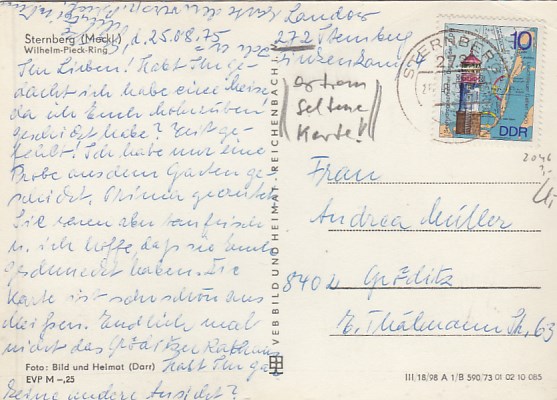 Sternberg (Meckl.)
Wilhelm-Pieck-Ring
d. 25.08.75
Landow
272 Sternberg
Finkenkamp 4
Ihr Lieben! Habt Ihr ge-
dacht ich habe eine Meise
da ich Euch Mohrrüben
geschickt habe? Weit ge-
fehlt! Ich habe nur eine
Probe aus dem Garten ge-
schickt. Prima geerntet
Sie waren aber taufrisch
u. ich hoffe daß sie Euch
geschmeckt haben. Die
Karte ist sehr schön aus
Meißen. Endlich mal
nicht das Gröditzer Rathaus
Habt Ihr gar
keine andere Ansicht?
Foto: Bild und Heimat (Darr)
EVP M –,25
VEB BILD UND HEIMAT REICHENBACH i. V.
extrem
seltene
Karte!
STERNBERG
272
10
DDR
2046
Frau
Andrea Müller
8402 Gröditz
E. Thälmann Str. 63
III/18/98 A 1/B 590/73 01 02 10 085